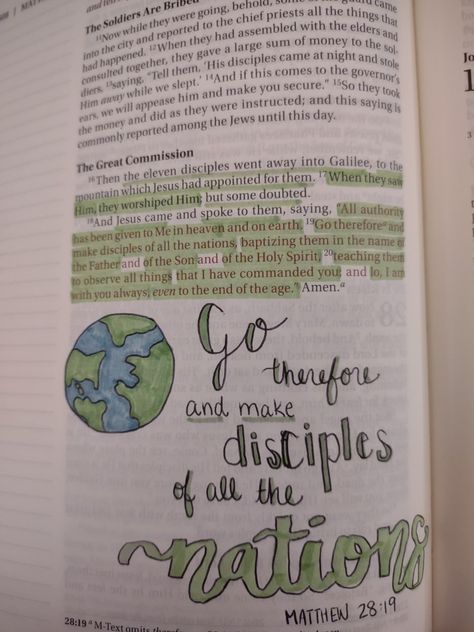 The Soldiers Are Bribed
11Now while they were going, behold, some of the guard came
into the city and reported to the chief priests all the things that
had happened. 12When they had assembled with the elders and
consulted together, they gave a large sum of money to the sol-
diers, 13saying, “Tell them, ‘His disciples came at night and stole
Him away while we slept.’ 14And if this comes to the governor’s
ears, we will appease him and make you secure.” 15So they took
the money and did as they were instructed; and this saying is
commonly reported among the Jews until this day.
The Great Commission
16Then the eleven disciples went away into Galilee, to the
mountain which Jesus had appointed for them. 17When they saw
Him, they worshiped Him; but some doubted.
18And Jesus came and spoke to them, saying, “All authority
has been given to Me in heaven and on earth. 19Go thereforeª and
make disciples of all the nations, baptizing them in the name of
the Father and of the Son and of the Holy Spirit, 20teaching them
to observe all things that I have commanded you; and lo, I am
with you always, even to the end of the age.” Amen.ª
Go
therefore
and make
disciples
of all the
nations
MATTHEW 28:19
28:19 ª M-Text omits
Jo
1